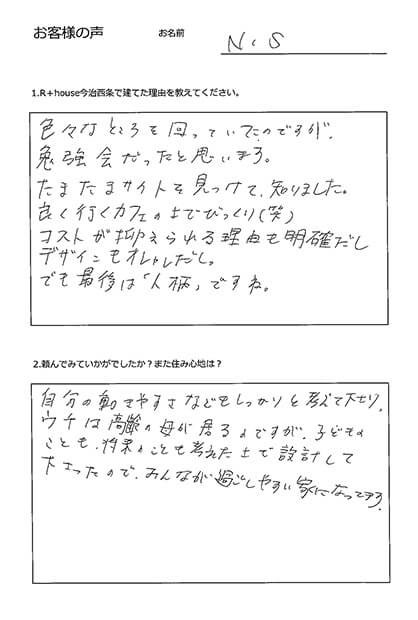 お客様の声
お名前
N.S
1.R+house今治西条で建てた理由を教えてください。
色々なところを回っていたのですが、
勉強会だったと思います。
たまたまサイトを見つけて、知りました。
良く行くカフェの上でびっくり(笑)
コストが抑えられる理由も明確だし
デザインもオシャレだし。
でも最後は「人柄」ですね。
2.頼んでみていかがでしたか？また住み心地は？
自分の動きやすさなどもしっかりと考えて下さり、
ウチは高齢の母が居るのですが、子どもの
ことも、将来のことも考えた上で設計して
下さったので、みんなが過ごしやすい家になってます。